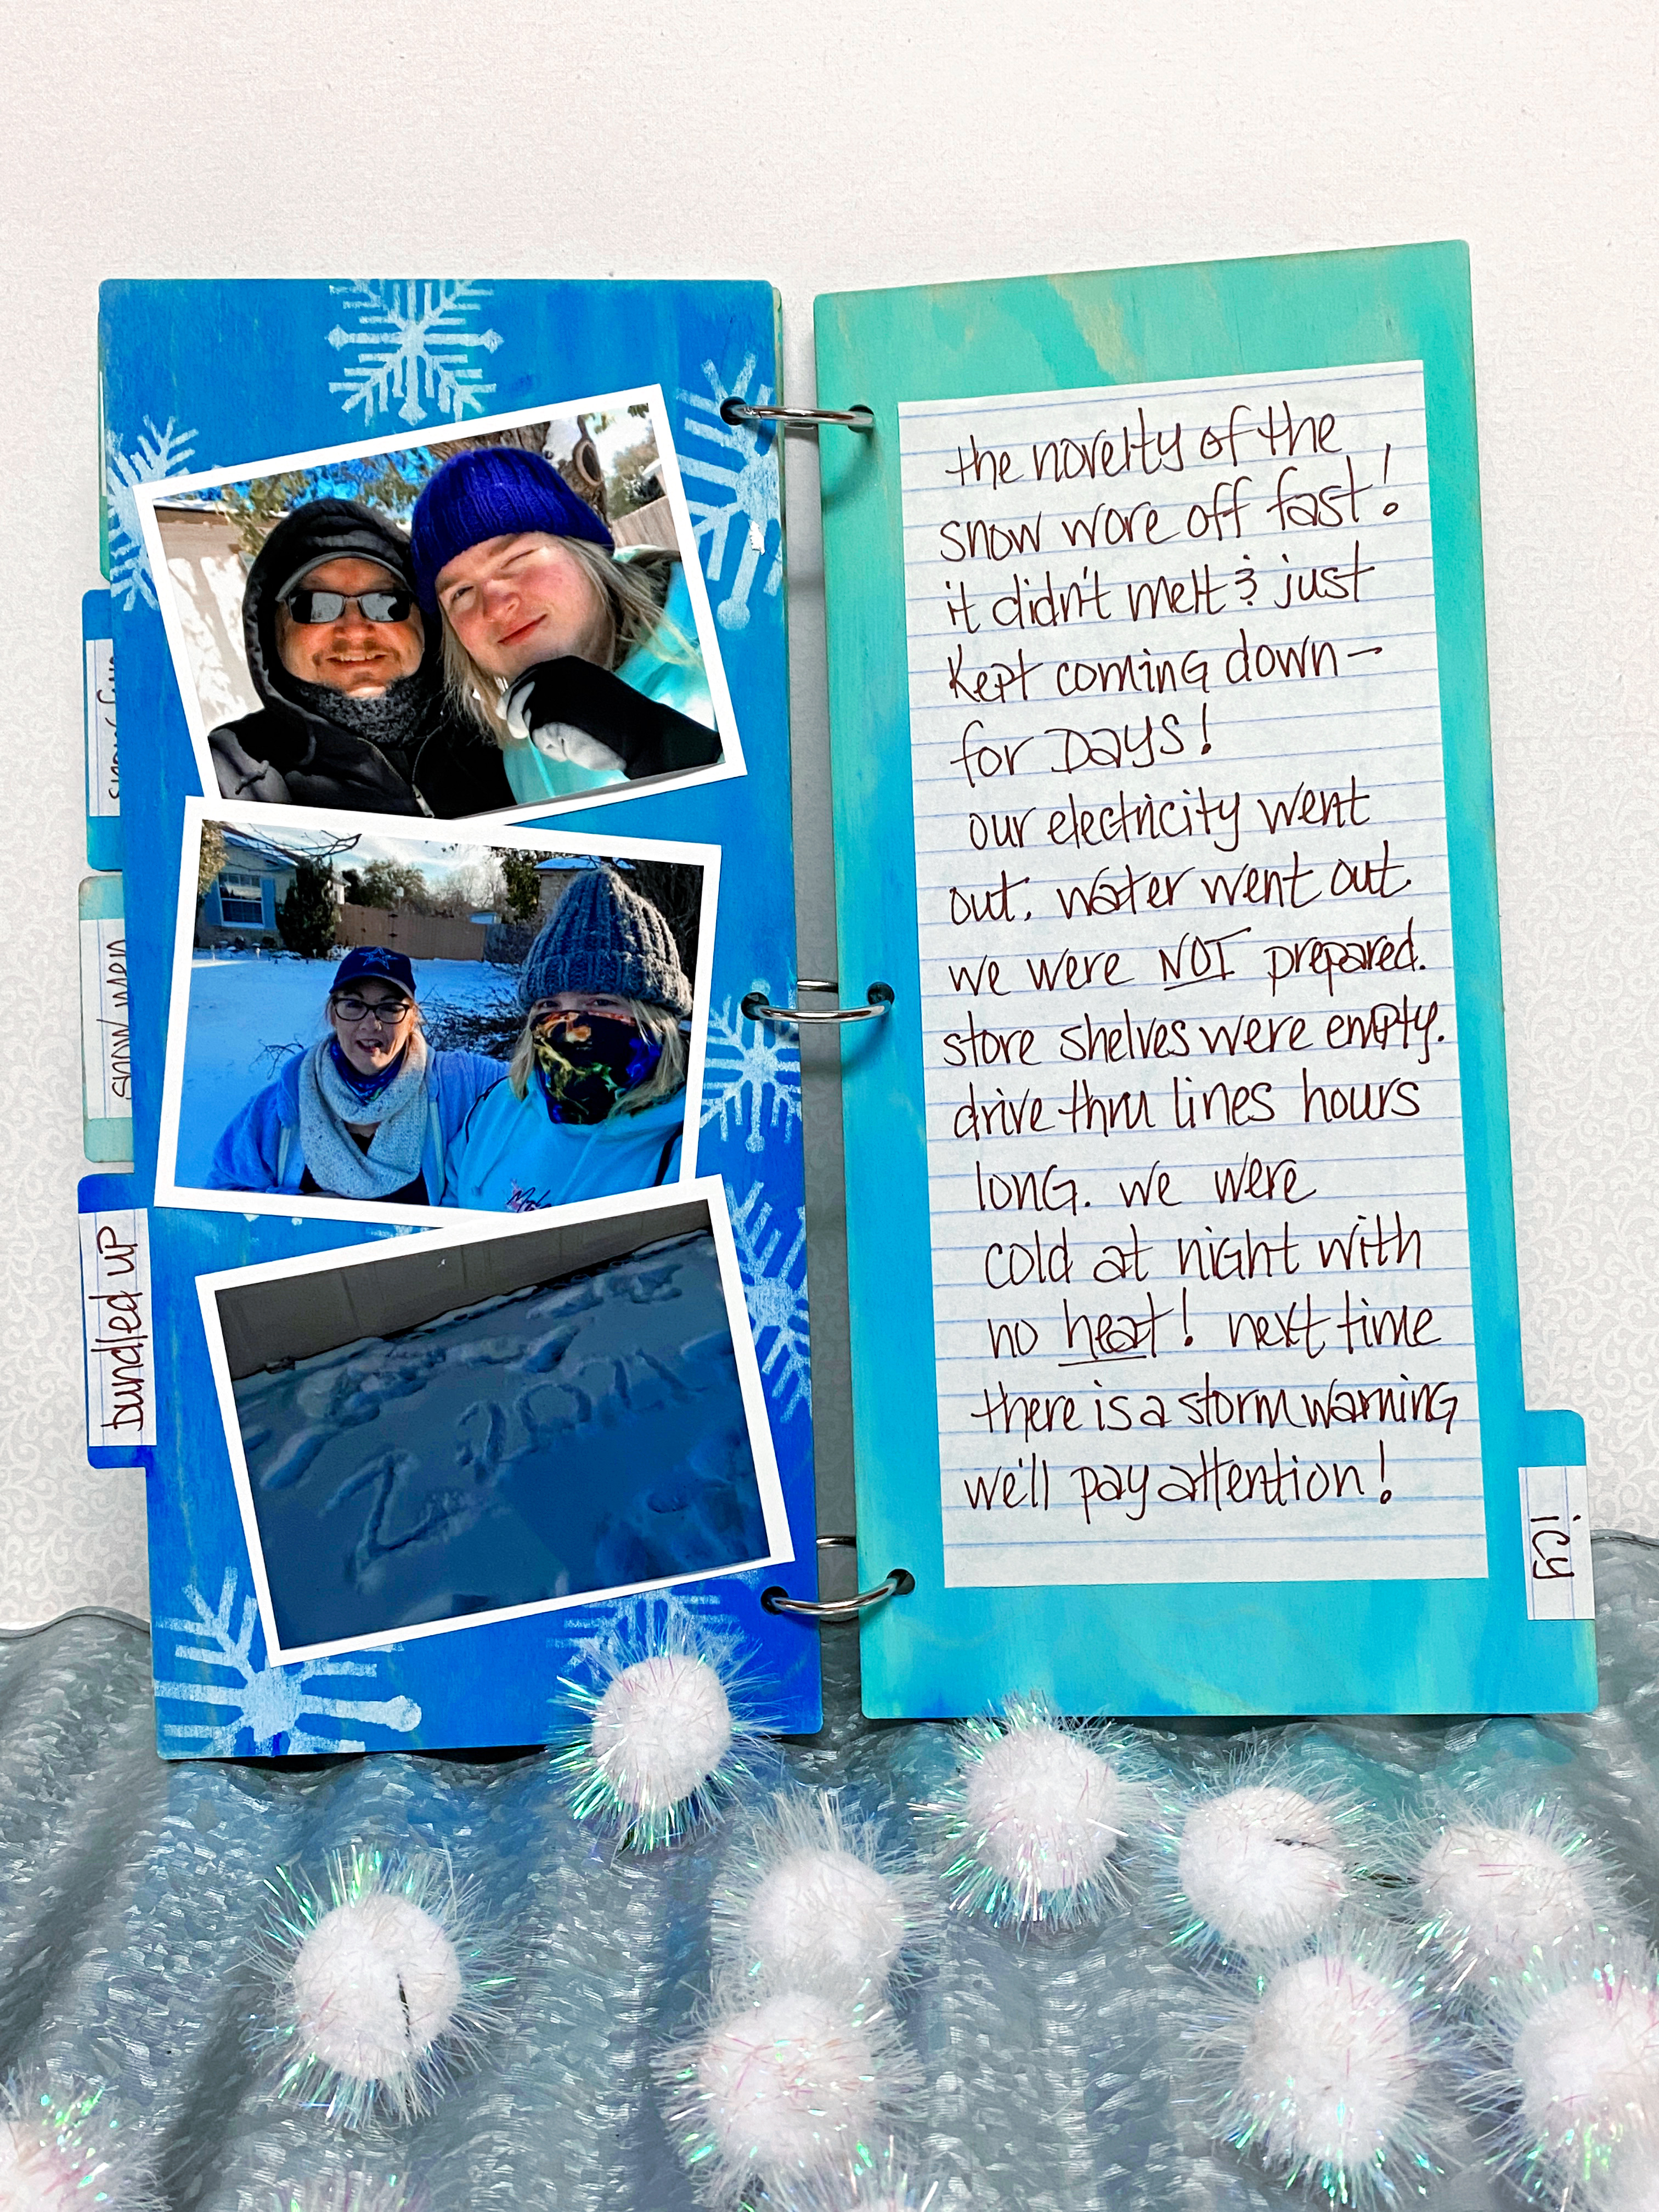 snow fun
snow men
bundled up
the novelty of the
snow wore off fast!
it didn't melt & just
kept coming down –
for Days!
our electricity went
out. water went out.
we were NOT prepared.
store shelves were empty.
drive thru lines hours
long. we were
cold at night with
no heat! next time
there is a storm warning
we'll pay attention!
icy